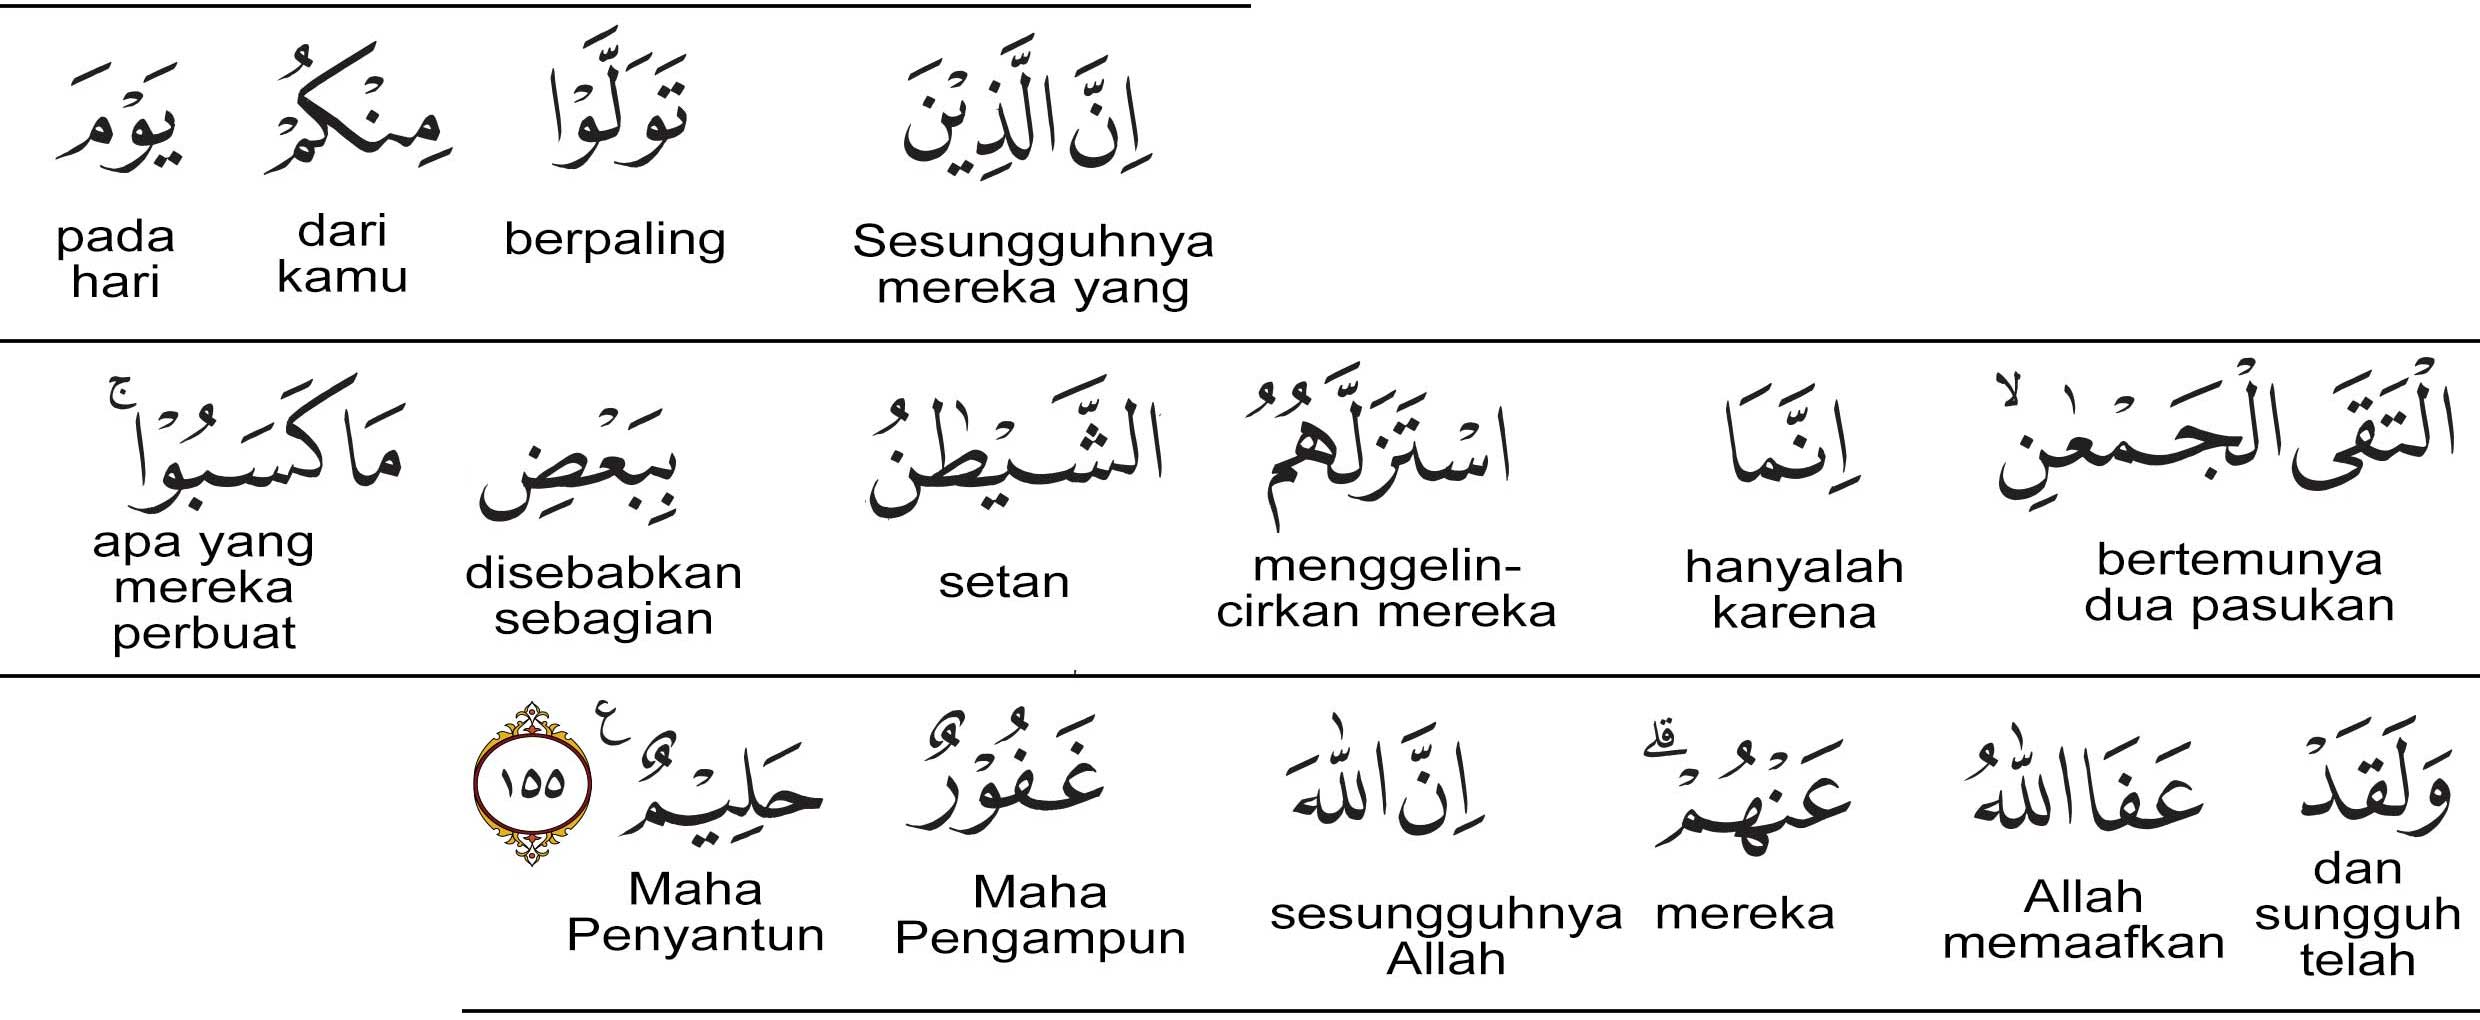 اِنَّ الَّذِيْنَ تَوَلَّوْا مِنْكُمْ يَوْمَ
Sesungguhnya berpaling dari pada
mereka yang kamu hari
الْتَقَى الْجَمْعٰنِۙ اِنَّمَا اسْتَزَلَّهُمُ الشَّيْطٰنُ بِبَعْضِ مَا كَسَبُوْاۚ
bertemunya hanyalah menggelin- setan disebabkan apa yang
dua pasukan karena cirkan mereka sebagian mereka
perbuat
وَلَقَدْ عَفَا اللّٰهُ عَنْهُمْۗ اِنَّ اللّٰهَ غَفُوْرٌ حَلِيْمٌ ࣖ ١٥٥
dan Allah mereka sesungguhnya Maha Maha
sungguh memaafkan Allah Pengampun Penyantun
telah